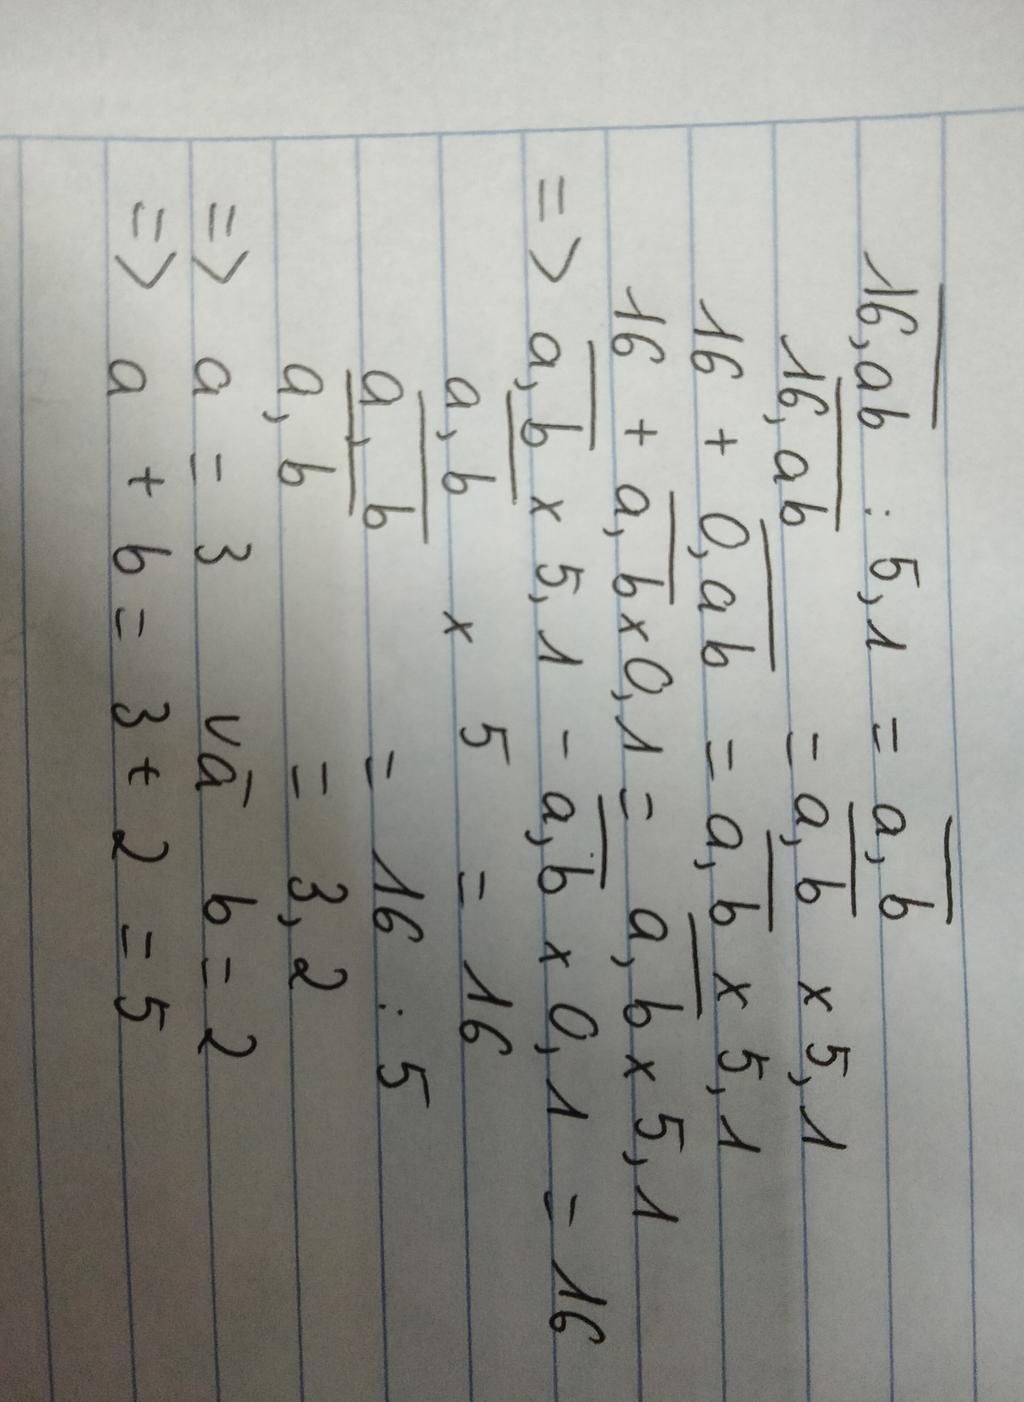 16,ab : 5,1 = a,b
16,ab = a,b x 5,1
16 + 0,ab = a,b x 5,1
16 + a,b x 0,1 = a,b x 5,1
=> a,b x 5,1 - a,b x 0,1 = 16
a,b x 5 = 16
a,b = 16 : 5
a,b = 3,2
=> a = 3 và b = 2
=> a + b = 3 + 2 = 5